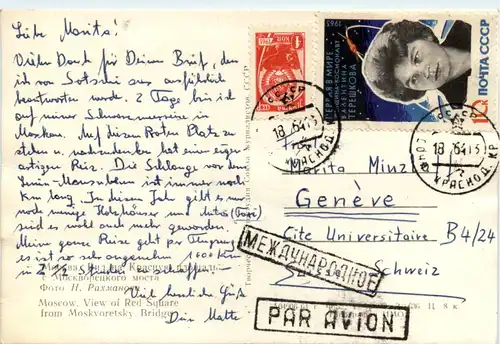 Liebe Marita!
Vielen Dank für Deinen Brief, den
ich von Sotschi aus ausführlich
beantworten werde. 2 Tage bin ich
auf meiner Schwarzmeerreise in
Moskau. Auf diesem Roten Platz zu
stehen u. nachzudenken hat einen eigen-
artigen Reiz. Die Schlange vor dem
Lenin-Mausoleum ist immer noch
km lang. In diesem Jahr gibt es nur
noch wenige Holzhäuser und Autos
sind es wohl auch mehr geworden.
Meine ganze Reise geht per Flugzeug
es ist so sehr angenehm 1000 km
in 2 ½ Stunden
Viel herzliche Grüße
Dein
Вид на Красную площадь
Москворецкого моста
Фото Н. Рахманова
Moscow. View of Red Square
from Moskvoretsky Bridge
ПОЧТА СССР
1965
ПЕРВАЯ В МИРЕ
ЖЕНЩИНА-КОСМОНАВТ
ВАЛЕНТИНА
ТЕРЕШКОВА
10К ПОЧТА СССР
СССР
18 64 13
КРАСНОД. КР.
СССР
18 64 13
КРАСНОД. КР.
Marita Minz
Genève
Cite Universitaire B4/24
Suisse
Schweiz
МЕЖДУНАРОДНОЕ
PAR AVION